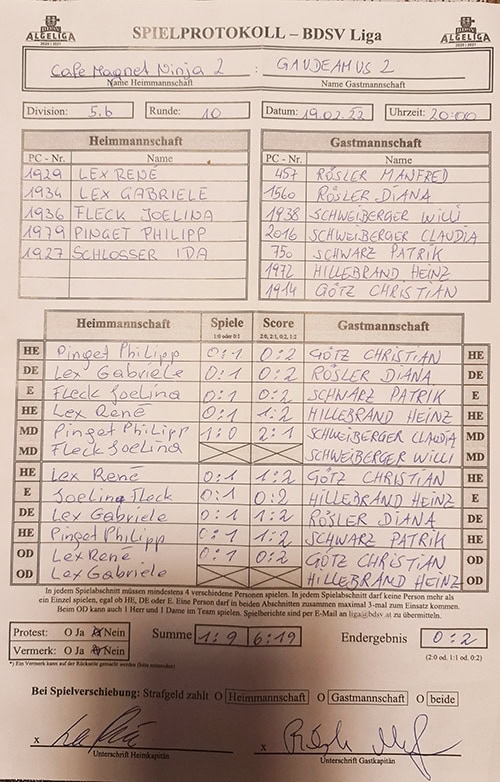 ALGELIGA SPIELPROTOKOLL – BDSV Liga ALGELIGA
Cafe Magnet Ninja 2 : GAUDEAMUS 2
Name Heimmannschaft Name Gastmannschaft
Division: 5.b Runde: 10 Datum: 19.02.22 Uhrzeit: 20:00
Heimmannschaft Gastmannschaft
PC - Nr. Name PC - Nr. Name
1929 LEX RENE 457 RÖSLER MANFRED
1934 LEX GABRIELE 1560 RÖSLER DIANA
1936 FLECK JOELINA 1938 SCHWEIBERGER WILLI
1979 PINGET PHILIPP 2016 SCHWEIBERGER CLAUDIA
1927 SCHLOSSER IDA 750 SCHWARZ PATRIK
1972 HILLEBRAND HEINZ
1914 GÖTZ CHRISTIAN
Heimmannschaft Spiele Score Gastmannschaft
1:0 oder 0:1 2:0, 2:1, 0:2, 1:2
HE Pinget Philipp 0:1 0:2 GÖTZ CHRISTIAN HE
DE Lex Gabriele 0:1 0:2 RÖSLER DIANA DE
E Fleck Joelina 0:1 0:2 SCHWARZ PATRIK E
HE Lex René 0:1 1:2 HILLEBRAND HEINZ HE
MD Pinget Philipp 1:0 2:1 SCHWEIBERGER CLAUDIA MD
MD Fleck Joelina SCHWEIBERGER WILLI MD
HE Lex René 0:1 1:2 GÖTZ CHRISTIAN HE
E Joelina Fleck 0:1 0:2 HILLEBRAND HEINZ E
DE Lex Gabriele 0:1 1:2 RÖSLER DIANA DE
HE Pinget Philipp 0:1 1:2 SCHWARZ PATRIK HE
OD Lex René 0:1 0:2 GÖTZ CHRISTIAN OD
OD Lex Gabriele HILLEBRAND HEINZ OD
In jedem Spielabschnitt müssen mindestens 4 verschiedene Personen spielen. In jedem Spielabschnitt darf keine Person mehr als
ein Einzel spielen, egal ob HE, DE oder E. Eine Person darf in beiden Abschnitten zusammen maximal 3-mal zum Einsatz kommen.
Beim OD kann auch 1 Herr und 1 Dame im Team spielen. Spielberichte sind per E-Mail an liga@bdsv.at zu übermitteln.
Protest: O Ja O Nein Summe 1:9 6:19 Endergebnis 0:2
Vermerk: O Ja O Nein (2:0 od. 1:1 od. 0:2)
*) Ein Vermerk kann auf der Rückseite gemacht werden
Bei Spielverschiebung: Strafgeld zahlt O Heimmannschaft O Gastmannschaft O beide
x x
Unterschrift Heimkapitän Unterschrift Gastkapitän